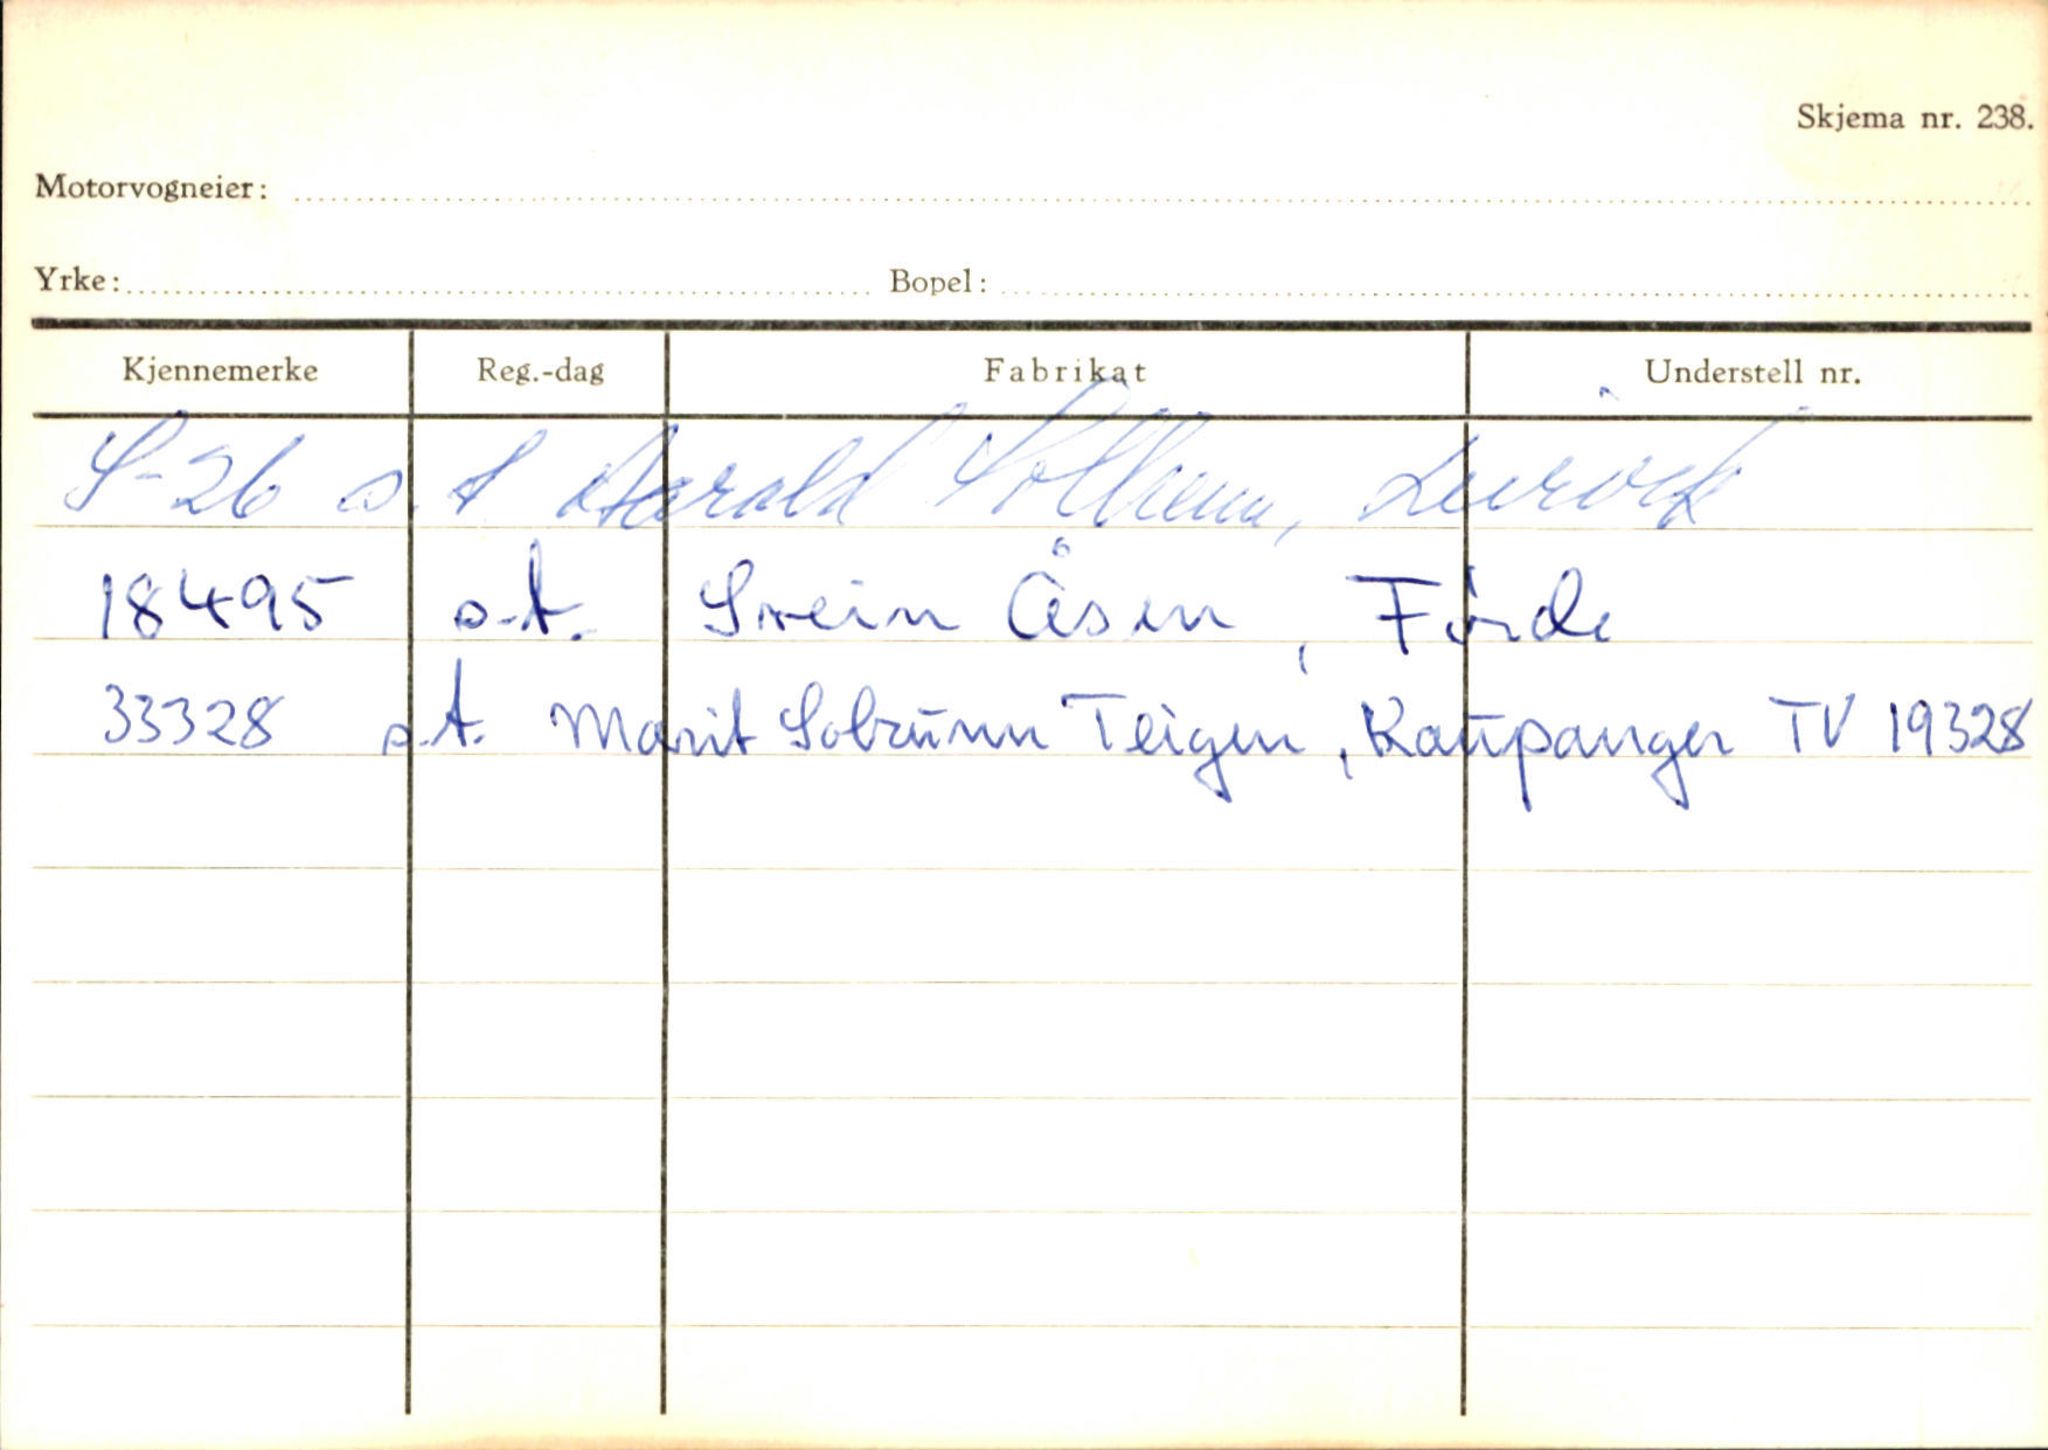 Skjema nr. 238.
Motorvogneier:
Yrke: Bopel:
Kjennemerke Reg.-dag Fabrikat Understell nr.
S-26 s.t Harald Solheim, Leirvik
18495 s.t. Svein Åsen, Førde
33328 s.t. Marit Solrunn Teigen, Kaupanger TV 19328